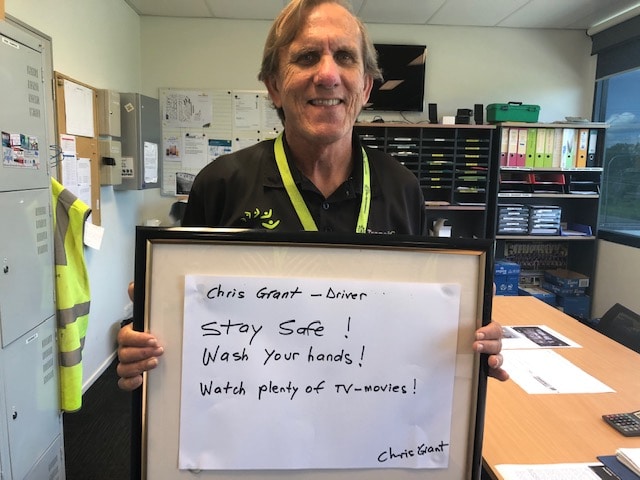 Chris Grant – Driver
Stay Safe !
Wash your hands !
Watch plenty of TV-movies !
Chris Grant